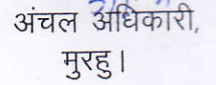 अंचल अधिकारी,
मुरहु।